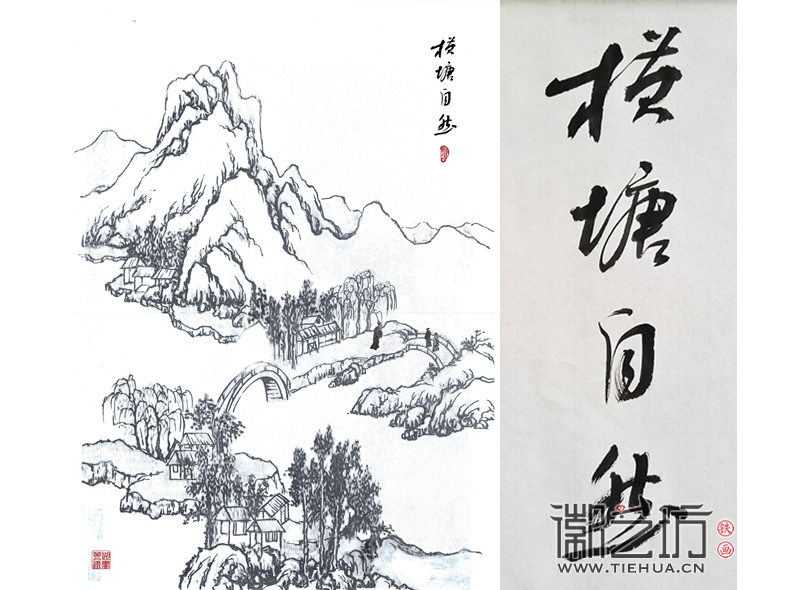 横塘自然
横塘自然
徽艺坊
铁画
WWW.TIEHUA.CN